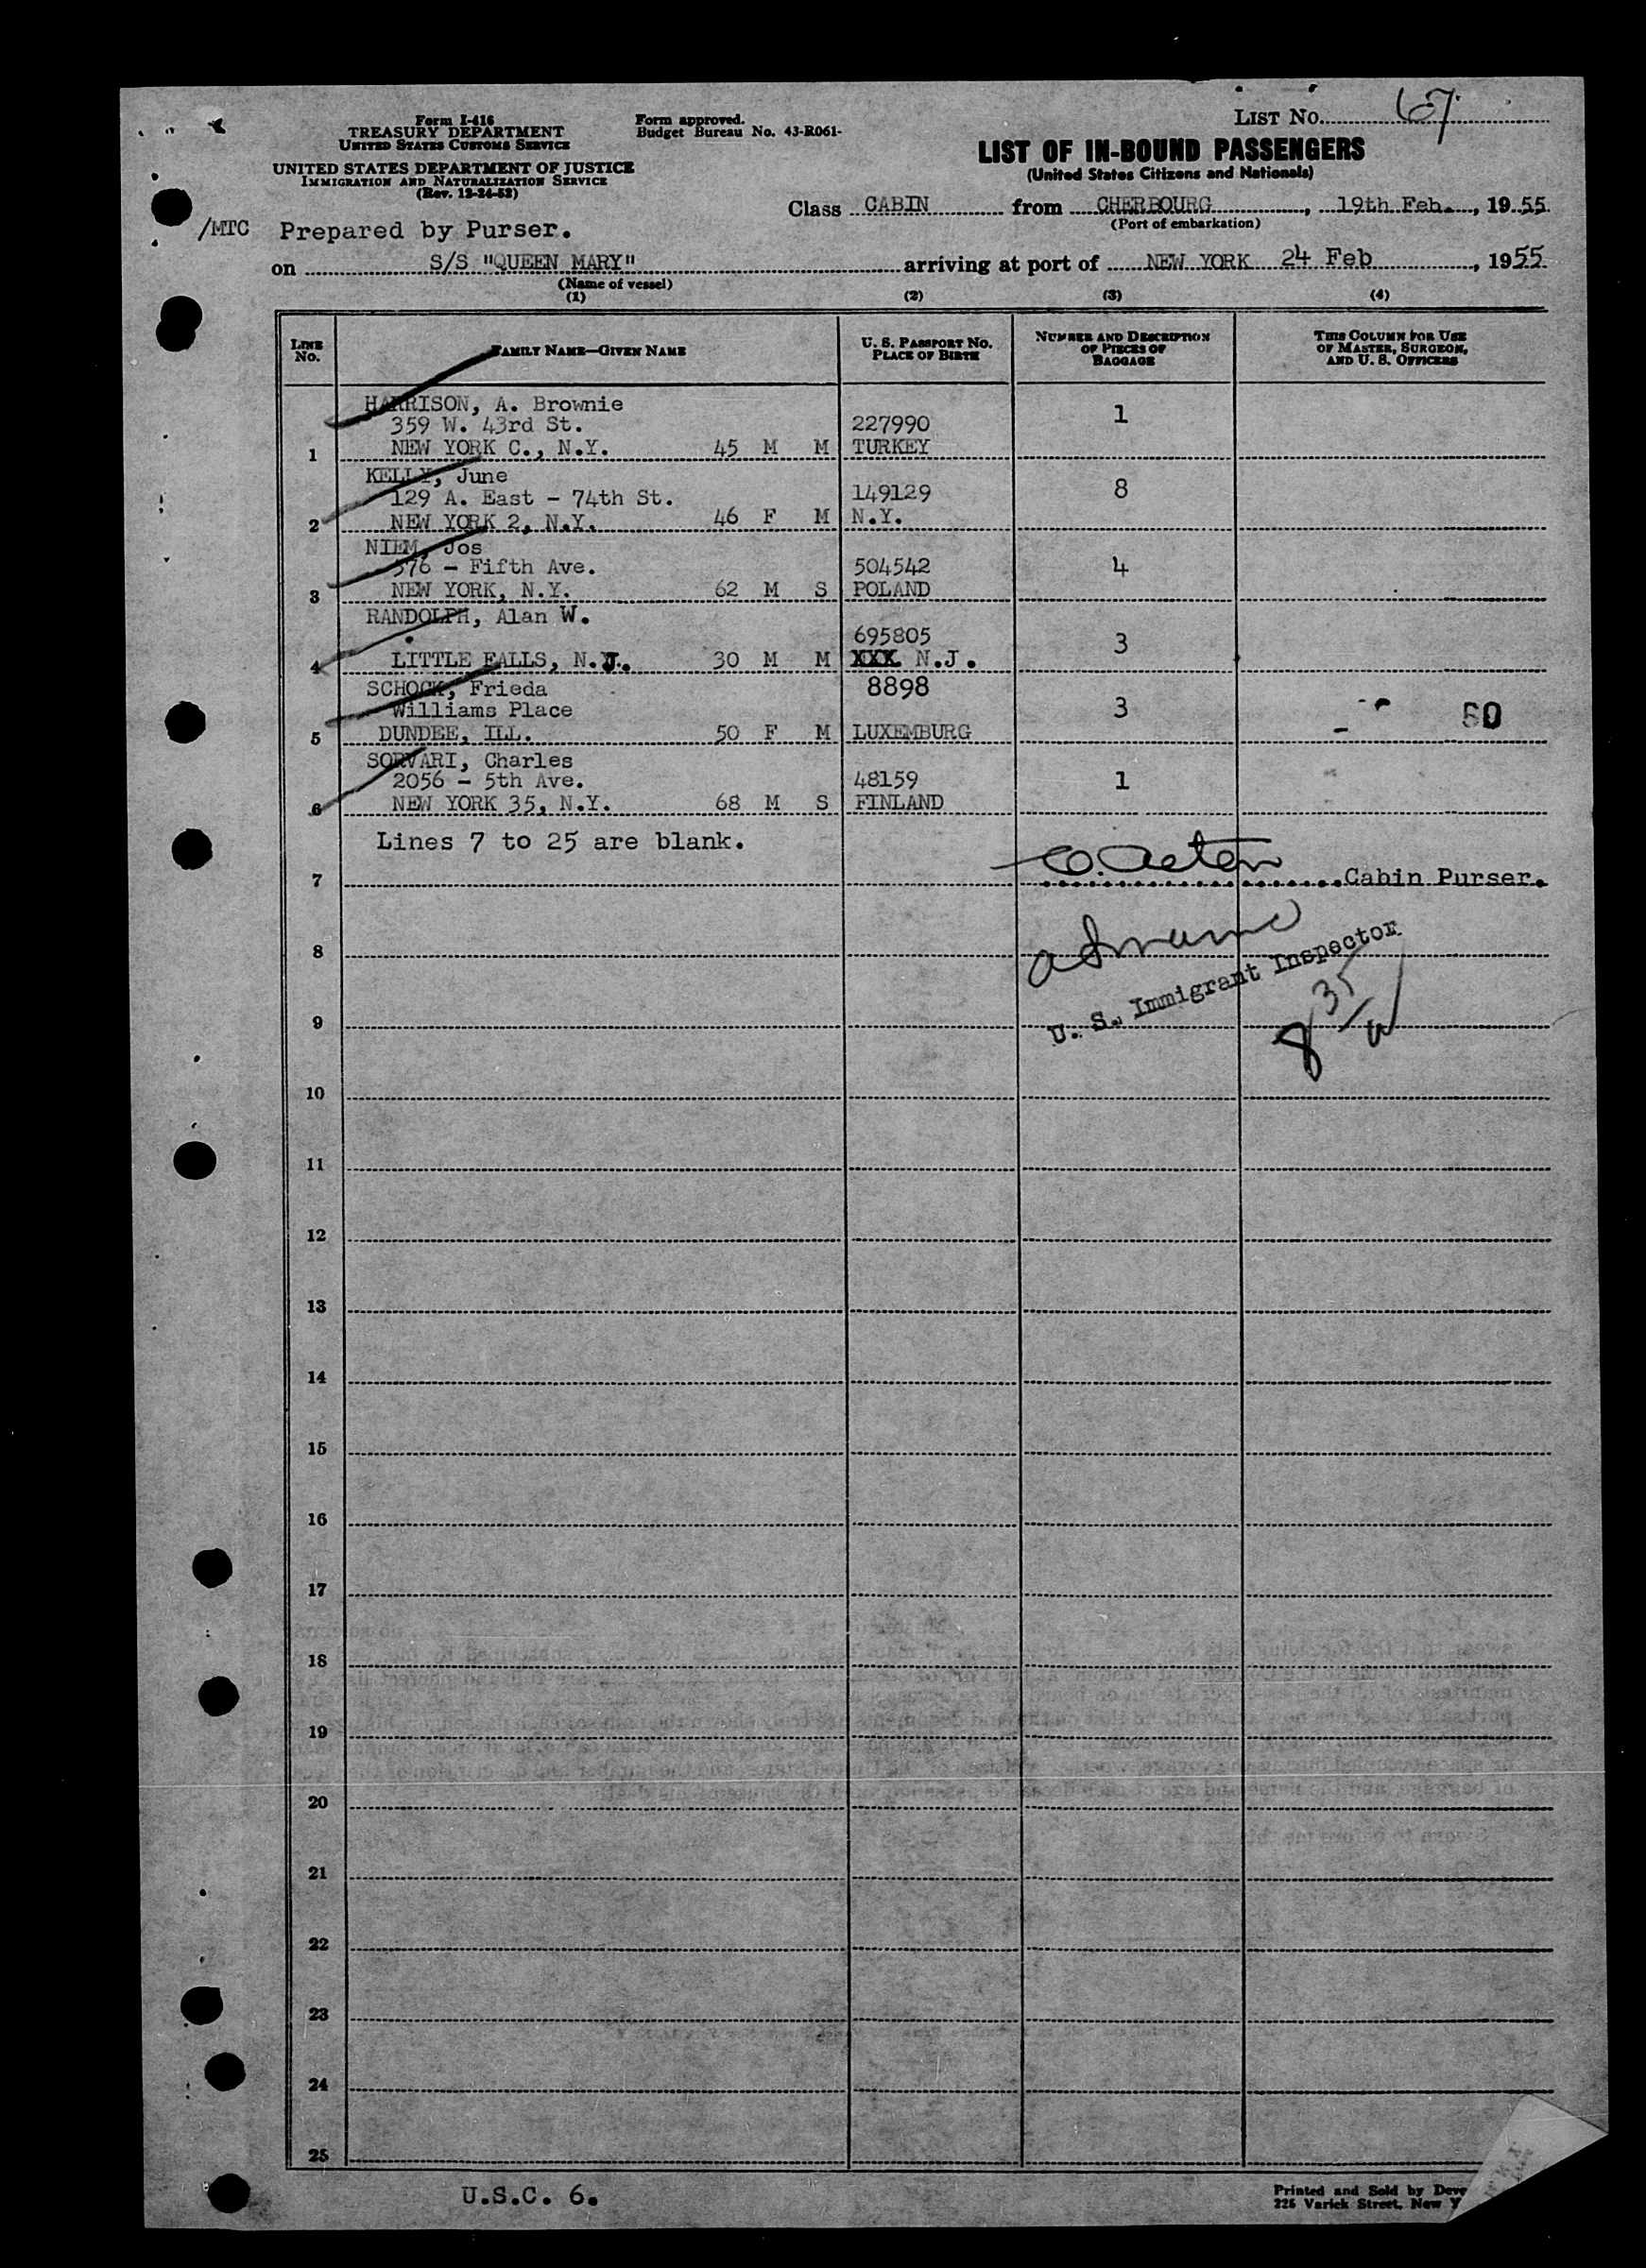 LIST No. 67
Form I-416
TREASURY DEPARTMENT
UNITED STATES CUSTOMS SERVICE
UNITED STATES DEPARTMENT OF JUSTICE
IMMIGRATION AND NATURALIZATION SERVICE
(Rev. 12-24-52)
Form approved.
Budget Bureau No. 43-R061-
LIST OF IN-BOUND PASSENGERS
(United States Citizens and Nationals)
Class CABIN from CHERBOURG, 19th Feb., 1955
(Port of embarkation)
/MTC Prepared by Purser.
on S/S "QUEEN MARY" arriving at port of NEW YORK 24 Feb, 1955
(Name of vessel)
(1) (2) (3) (4)
LINE No. FAMILY NAME—GIVEN NAME U. S. PASSPORT No. PLACE OF BIRTH NUMBER AND DESCRIPTION OF PIECES OF BAGGAGE THIS COLUMN FOR USE OF MASTER, SURGEON, AND U. S. OFFICERS
HARRISON, A. Brownie
359 W. 43rd St. 227990 1
1 NEW YORK C., N.Y. 45 M M TURKEY
KELLY, June
129 A. East - 74th St. 149129 8
2 NEW YORK 2, N.Y. 46 F M N.Y.
NIEM, Jos
576 - Fifth Ave. 504542 4
3 NEW YORK, N.Y. 62 M S POLAND
RANDOLPH, Alan W.
695805 3
4 LITTLE FALLS, N.J. 30 M M XXX N.J.
SCHOCK, Frieda 8898
Williams Place 3 50
5 DUNDEE, ILL. 50 F M LUXEMBURG
SORVARI, Charles
2056 - 5th Ave. 48159 1
6 NEW YORK 35, N.Y. 68 M S FINLAND
Lines 7 to 25 are blank.
7 Cabin Purser.
8
U. S. Immigrant Inspector
9
8 35
10
11
12
13
14
15
16
17
18
19
20
21
22
23
24
25
U.S.C. 6.
Printed and Sold by
225 Varick Street, New Y